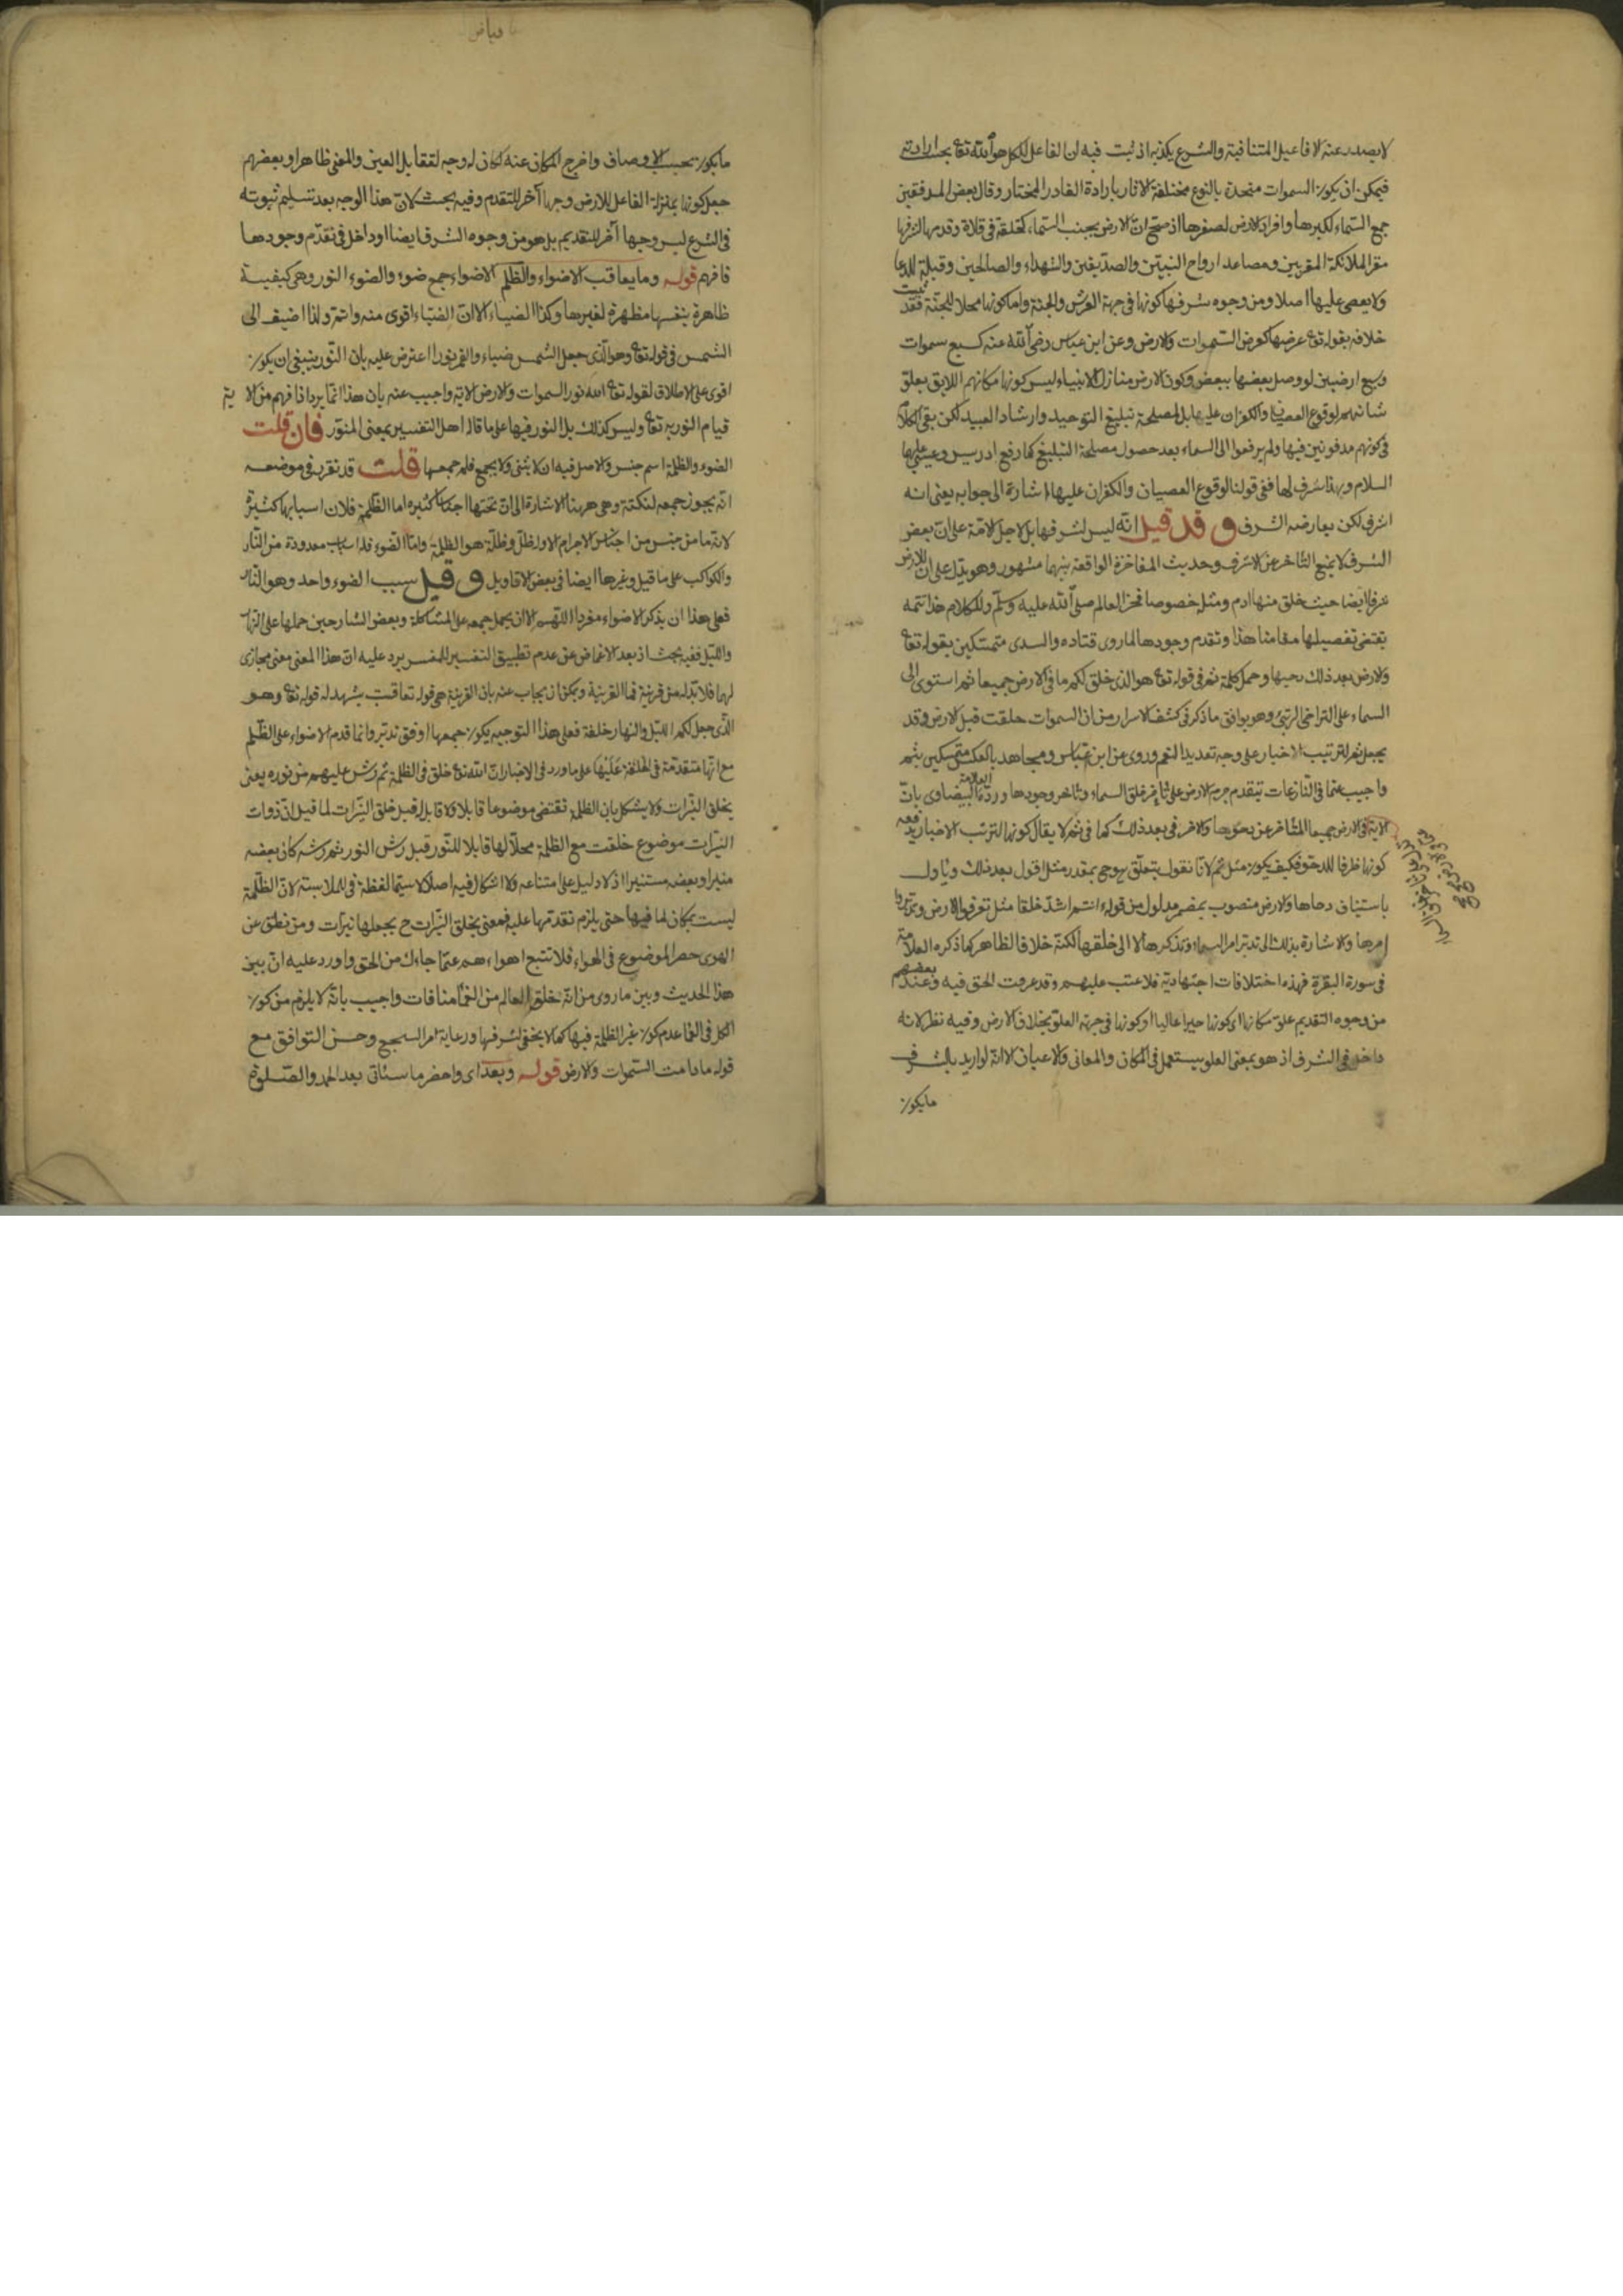 لا يصدر عنه الافاعيل المتنافية والشرع يكذبه اذ ثبت فيه ان الفاعل للكل هو الله تع بحسب ارادته
فيمكن ان يكون السموات متحدة بالنوع مختلفة الاثار بارادة القادر المختار وقال بعض المدققين
جمع السماء لكبرها وافراد الارض لصغرها اذ صح ان الارض بجنب السماء كحلقة في فلاة وقدمها لشرفها
مقر الملائكة المقربين ومصاعد ارواح النبيين والصديقين والشهداء والصالحين وقبلة للدعا
ولا يعصى عليها اصلا ومن وجوه شرفها كونها في جهة العرش والجنة واما كونها محلا للجنة فقد ثبت
خلافه بقوله تع عرضها كعرض السموات والارض وعن ابن عباس رضي الله عنه كسبع سموات
وسبع ارضين لو وصل بعضها ببعض وكون الارض منازل الانبياء ليس كونها مكانهم اللايق بعلو
شانهم لوقوع العصيان والكفران عليها بل لمصلحة تبليغ التوحيد وارشاد العبيد لكن بقي الكلام
في كونهم مدفونين فيها ولم يرفعوا الى السماء بعد حصول مصلحة التبليغ كما رفع ادريس وعيسى عليهما
السلام وبهذا شرف لها ففي قولنا لوقوع العصيان والكفران عليها اشارة الى جوابه يعني انه
اشرف لكن يعارضه الشرف وقد قيل انه ليس لشرفها بل لاجل الامة على ان بعض
الشرف لا يمنع التاخر عن الاشرف وحديث المفاخرة الواقعة بينهما مشهور وهو يدل على ان للارض
شرفا ايضا حيث خلق منها ادم ومثله خصوصا فخر العالم صلى الله عليه وسلم وللكلام خاتمه
يقتضي تفصيلها مقامنا هذا وتقدم وجودها لما روى قتاده والسدى متمسكين بقوله تع
والارض بعد ذلك دحيها وحمل كلمة ثم في قوله تع هو الذي خلق لكم ما في الارض جميعا ثم استوى الى
السماء على التراخي الرتبي وهو يوافق ما ذكر في كشف الاسرار من ان السموات خلقت قبل الارض وقد
يجعل ثم لترتيب الاخبار على وجه تعديد النعم وروى عن ابن عباس ومجاهد بالعكس متمسكين بثم
واجيب عما في النازعات بتقدم جرم الارض على تاخر خلق السماء وتاخر وجودها ورده العلامة البيضاوى بان
كونها ظرفا للدحو فكيف يكون مثل ثم لانا نقول يتعلق ح وحي بمقدر مثل اقول بعد ذلك وياول
باستيناف دحاها والارض منصوب بمضمر مدلول من قوله ءانتم اشد خلقا مثل تعرفوا الارض وتدبروا
امرها والاشارة بذلك الى تدبر امر السماء وتذكرها لا الى خلقها لكنه خلاف الظاهر كما ذكره العلامة
في سورة البقرة فهذه اختلافات اجتهادية فلا عتب عليهم وقد عرفت الحق فيه وعند بعضهم
من وجوه التقديم علو مكانها اي كونها حيزا عاليا او كونها في جهة العلو بخلاف الارض وفيه نظر لانه
داخل في الشرف اذ هو بمعنى العلو يستعمل في المكان والمعاني والاعيان الا انه لو اريد بالشرف
ما يكون
ما يكون بحسب الاوصاف واخرج المكان عنه لكان له وجه لتقابل العين والمعنى ظاهرا وبعضهم
جعل كونها بمنزلة الفاعل للارض وجها آخر للتقدم وفيه بحث لان هذا الوجه بعد تسليم ثبوته
في الشرع ليس وجها آخر للتقديم بل هو من وجوه الشرف ايضا او داخل في تقدم وجودها
فافهم قوله وما يعاقب الاضواء والظلم الاضواء جمع ضوء والضوء النور وهي كيفية
ظاهرة بنفسها مظهرة لغيرها وكذا الضياء الا ان الضياء اقوى منه واتم ولذا اضيف الى
الشمس في قوله تع وهو الذي جعل الشمس ضياء والقمر نورا اعترض عليه بان النور ينبغي ان يكون
اقوى على الاطلاق لقوله تع الله نور السموات والارض الاية واجيب عنه بان هذا انما يرد اذا فهم من الا ية
قيام النور به تع وليس كذلك بل النور فيها على ما قال اهل التفسير بمعنى المنور فان قلت
الضوء والظلمة اسم جنس والاصل فيه ان لا يثنى ولا يجمع فلم جمعها قلت قد تقرر في موضعه
انه يجوز جمعه لنكتة وهي ههنا الاشارة الى ان تحتها اجناسا كثيره اما الظلمة فلان اسبابها كثيرة
لانه ما من جنس من اجناس الاجرام الا وله ظل وظله هو الظلمة واما الضوء فله اسباب معدودة من النار
والكواكب على ما قيل وغيرها ايضا في بعض الاقاويل وقيل سبب الضوء واحد وهو النار
فعلى هذا ان يذكر الاضواء مفردا اللهم الا ان يحمل جمعه على المشاكلة وبعض الشارحين حملها على النهار
والليل ففيه بحث اذ بعد الاغماض عن عدم تطبيق التفسير للمفسر يرد عليه ان هذا المعنى معنى مجازى
لهما فلا بد له من قرينة فما القرينة ويمكن ان يجاب عنه بان القرينة هي قوله تعاقب يشهد له قوله تع وهو
الذي جعل لكم الليل والنهار خلفة فعلى هذا التوجيه يكون جمعها اوفق تدبر وانما قدم الاضواء على الظلم
مع انها متقدمة في الخلقة عليها على ما ورد في الاخبار ان الله تع خلق في الظلمة ثم رش عليهم من نوره يعني
بخلق النيرات ولا يشكل بان الظلمة تقتضي موضوعا قابلا ولا قابل قبل خلق النيرات لما قيل ان ذوات
النيرات موضوع خلقت مع الظلمة محلا لها قابلا للنور قبل رش النور ثم رشه كان بعضه
منيرا وبعضه مستنيرا اذ لا دليل على امتناعه ولا اشكال فيه اصلا لا سيما لفظة في للملابسة لان الظلمة
ليست بمكان لما فيها حتى يلزم تقدمها عليه فمعنى بخلق النيرات ح يجعلها نيرات ومن نطق عن
الهوى حصر الموضوع في الهواء فلا تتبع اهواءهم عما جاءك من الحق واورد عليه ان بين
هذا الحديث وبين ما روى من انه خلق العالم من العما منافات واجيب بانه لا يلزم من كون
الكل في العما عدم كون غير الظلمة فيها كما لا يخفى لشرفها ورعاية امر السجع وحسن التوافق مع
قوله ما دامت السموات والارض قوله وبعد اي واحضر ما سياتي بعد الحمد والصلوة